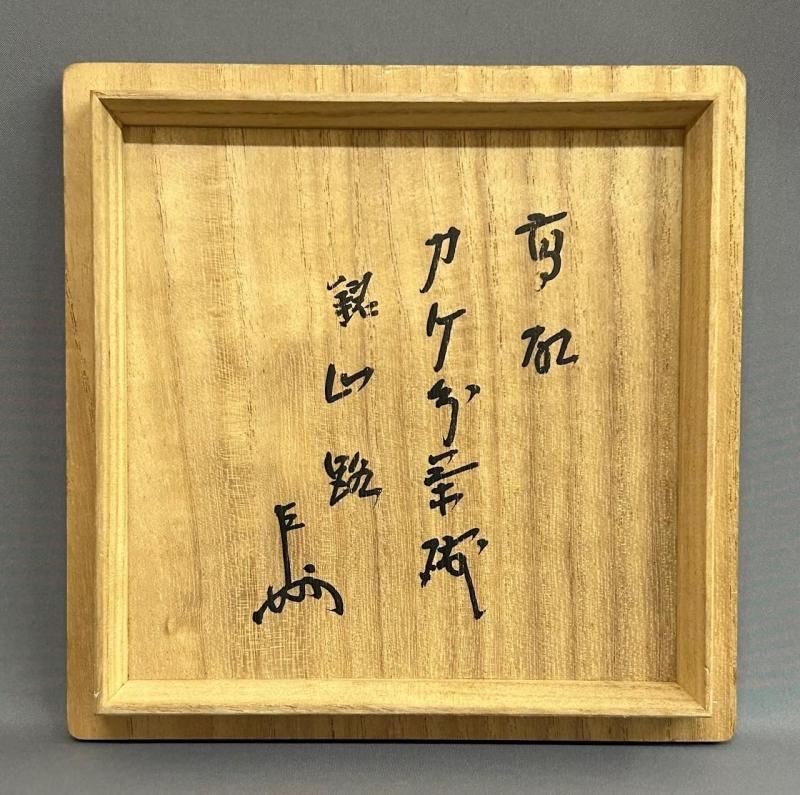 高取
カケ分茶碗
銘山路